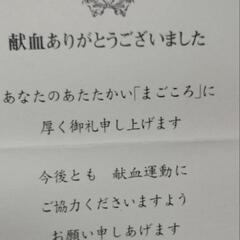 献血ありがとうございました
あなたのあたたかい「まごころ」に
厚く御礼申し上げます
今後とも　献血運動に
ご協力くださいますよう
お願い申しあげます